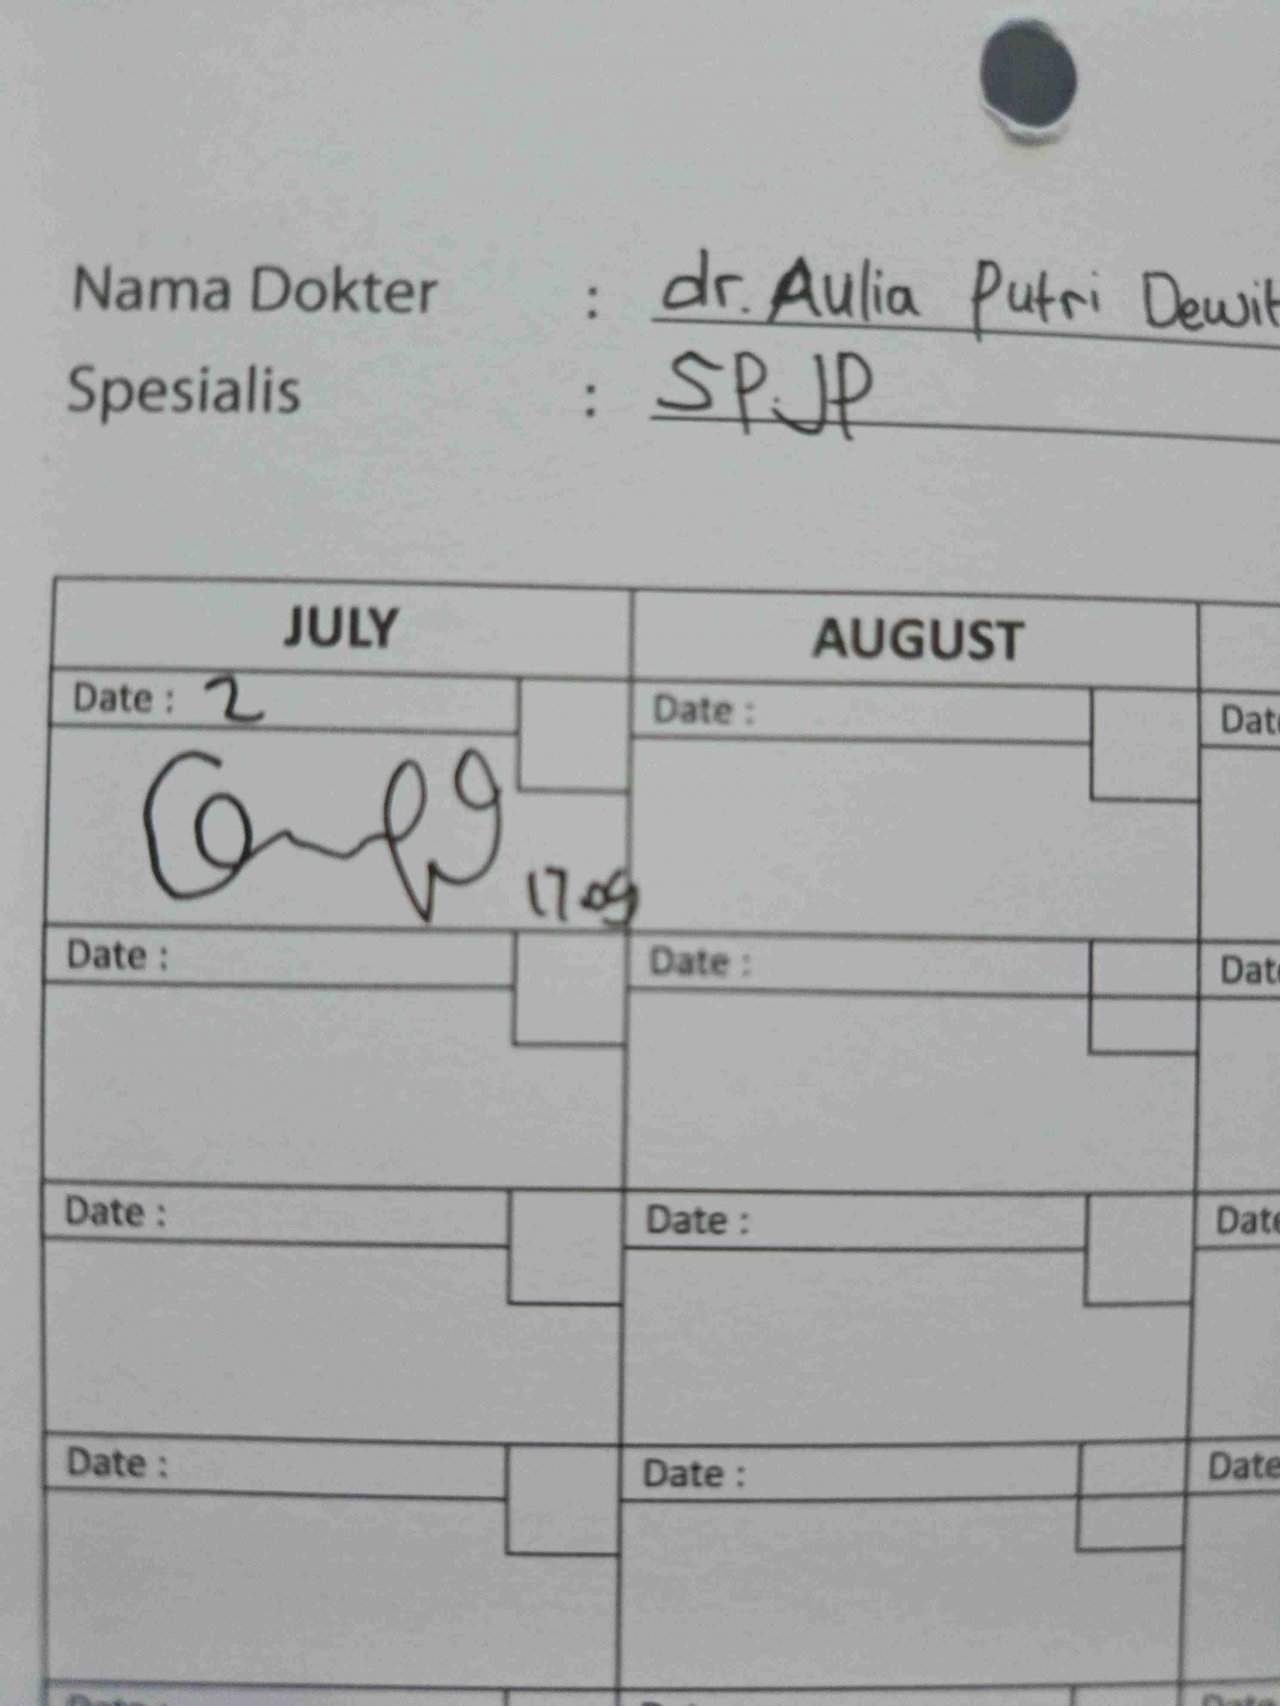 Nama Dokter : dr. Aulia Putri Dewit
Spesialis : SP.JP
JULY AUGUST
Date : 2 Date : Date
17.09
Date : Date : Date
Date : Date : Date
Date : Date : Date
Date : Date : Date